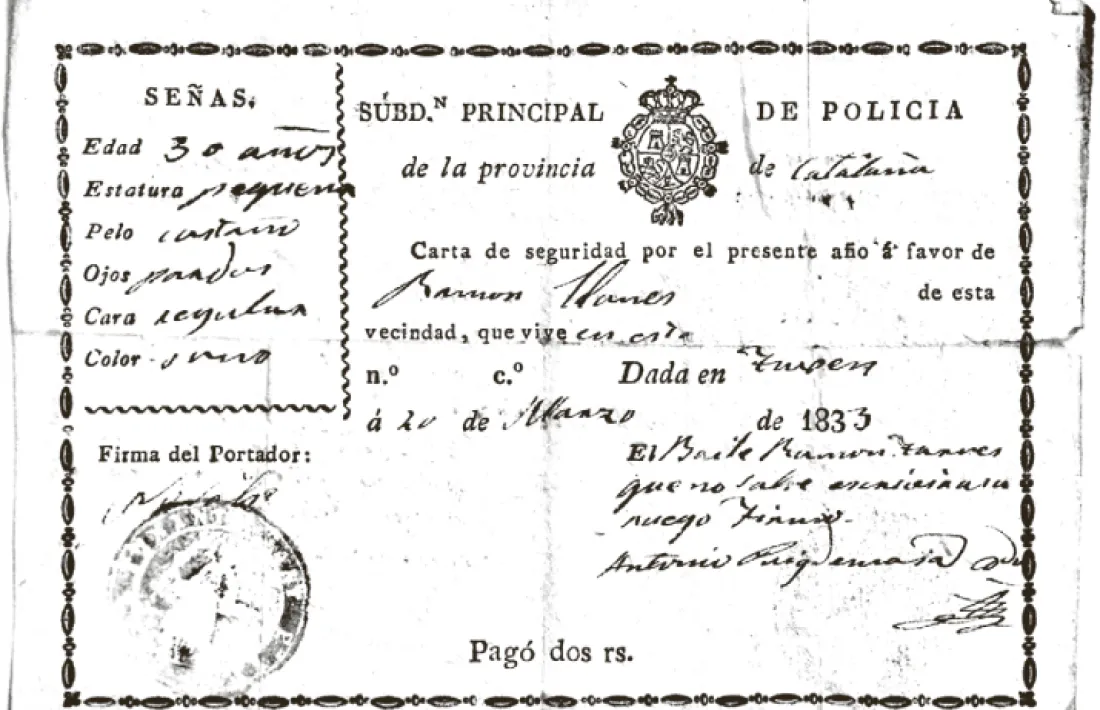 SEÑAS.
Edad 30 años
Estatura pequeña
Pelo castaño
Ojos pardos
Cara regular
Color sano
SÚBD.ᴺ PRINCIPAL DE POLICIA
de la provincia de Cataluña
Carta de seguridad por el presente año á favor de
Ramon de esta
vecindad, que vive en esta
n.º c.º Dada en
á 20 de Marzo de 1833
Firma del Portador:
El Baile Ramon
que no sabe
ruego
Antonio
Pagó dos rs.